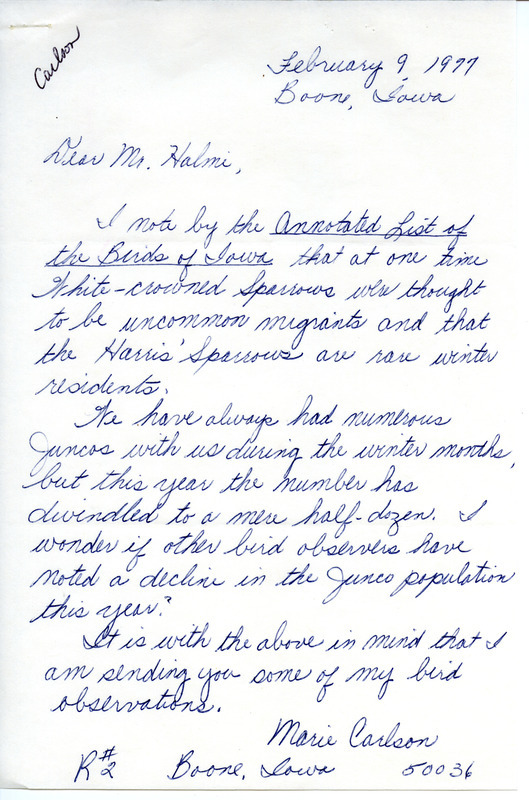 Carlson
February 9, 1977
Boone, Iowa
Dear Mr. Halmi,
I note by the Annotated List of
the Birds of Iowa that at one time
White-crowned Sparrows were thought
to be uncommon migrants and that
the Harris' Sparrows are rare winter
residents.
We have always had numerous
Juncos with us during the winter months,
but this year the number has
dwindled to a mere half-dozen. I
wonder if other bird observers have
noted a decline in the Junco population
this year?
It is with the above in mind that I
am sending you some of my bird
observations.
Marie Carlson
R#2 Boone, Iowa 50036